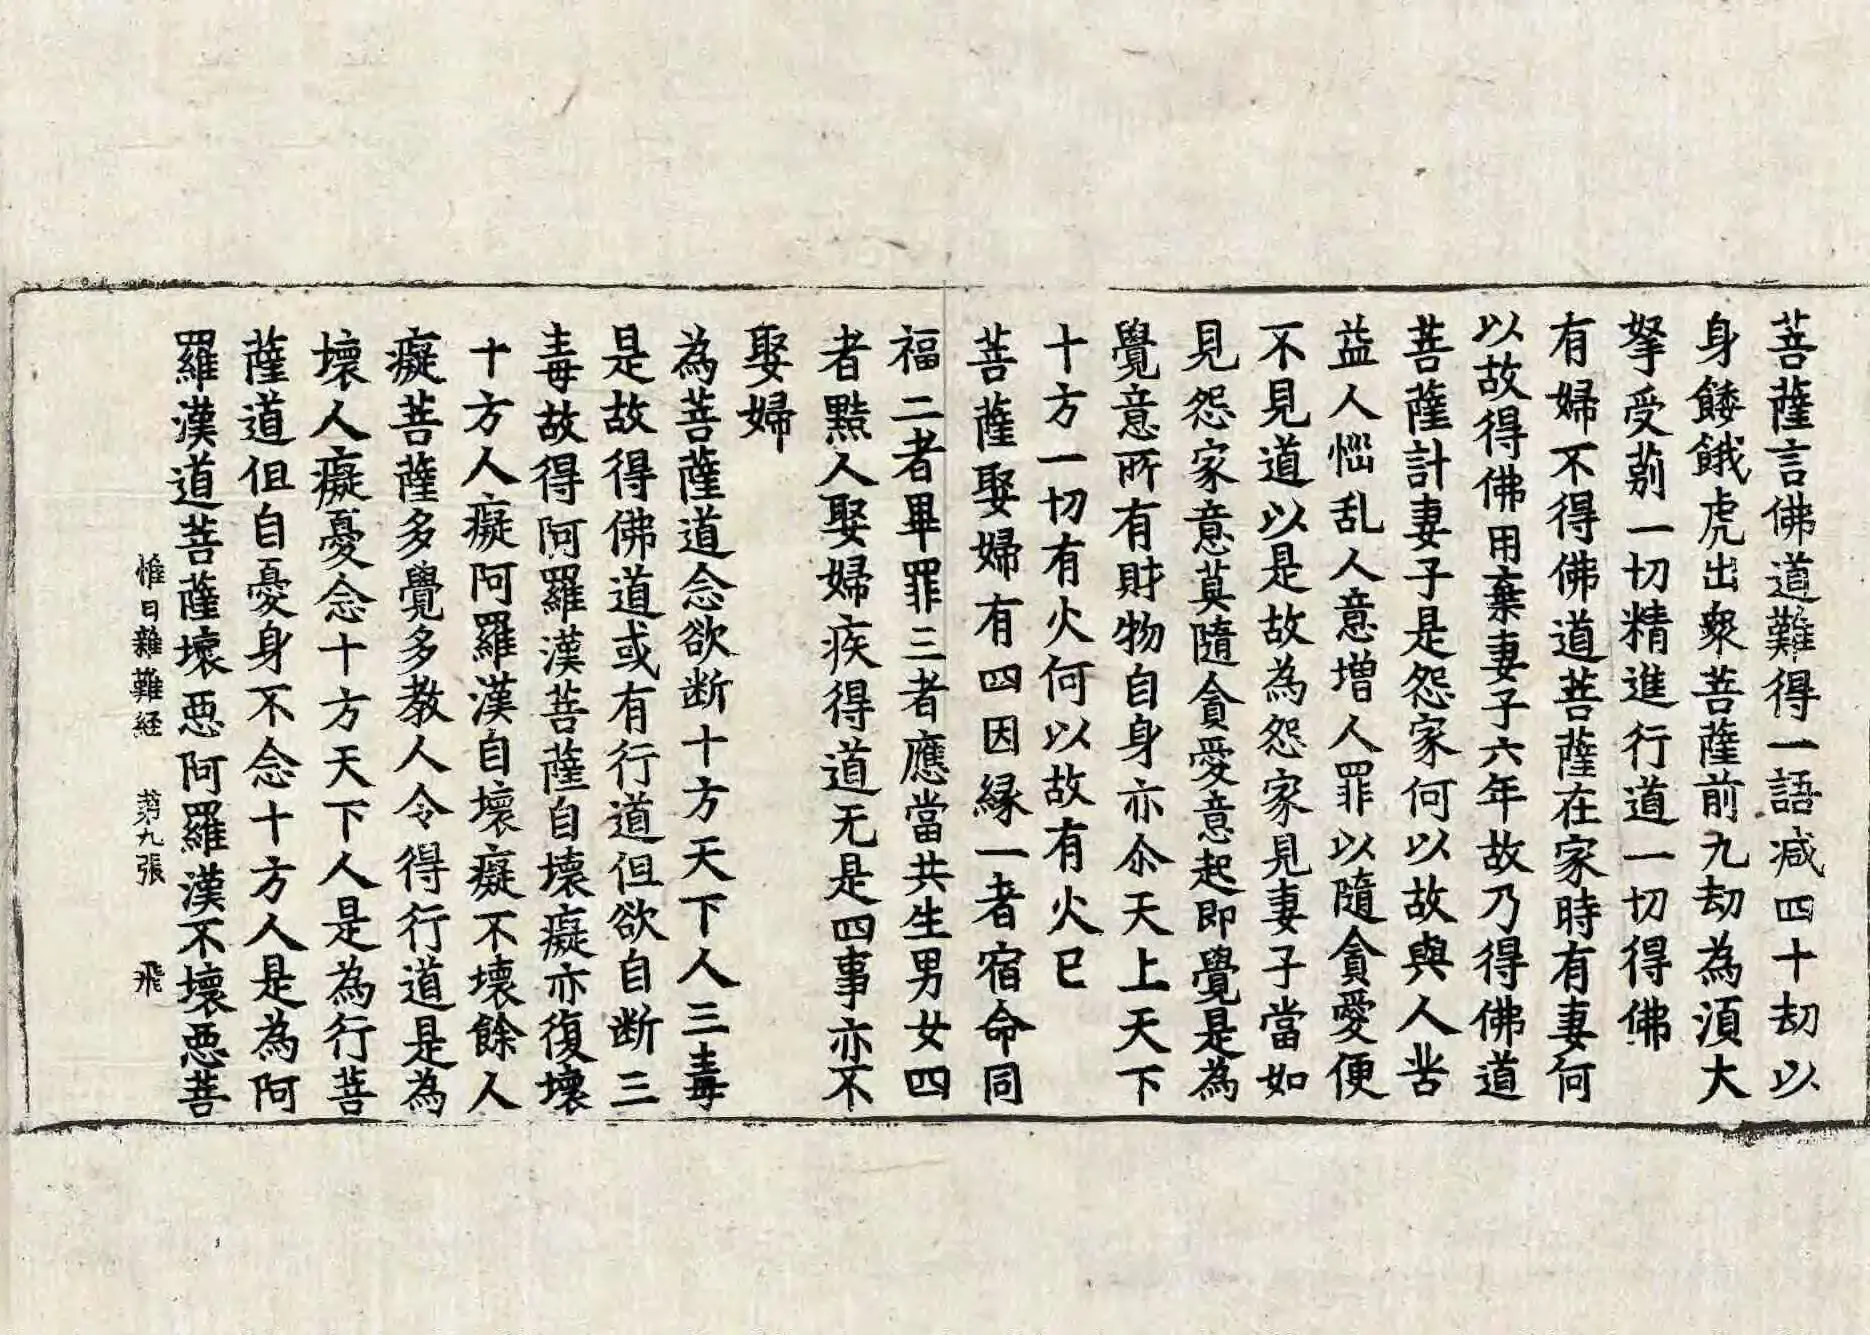 菩薩言佛道難得一語減四十劫以
身餧餓虎出衆菩薩前九劫為湏大
拏受莂一切精進行道一切得佛
有婦不得佛道菩薩在家時有妻何
以故得佛用棄妻子六年故乃得佛道
菩薩計妻子是怨家何以故與人苦
益人惱乱人意增人罪以隨貪愛便
不見道以是故為怨家見妻子當如
見怨家意莫隨貪愛意起即覺是為
覺意所有財物自身亦尒天上天下
十方一切有火何以故有火已
菩薩娶婦有四因縁一者宿命同
福二者畢罪三者應當共生男女四
者黠人娶婦疾得道无是四事亦不
娶婦
為菩薩道念欲断十方天下人三毒
是故得佛道或有行道但欲自断三
毒故得阿羅漢菩薩自壞癡亦復壞
十方人癡阿羅漢自壞癡不壞餘人
癡菩薩多覺多教人令得行道是為
壞人癡憂念十方天下人是為行菩
薩道但自憂身不念十方人是為阿
羅漢道菩薩壞惡阿羅漢不壞惡菩
惟日雜難経 苐九張 飛